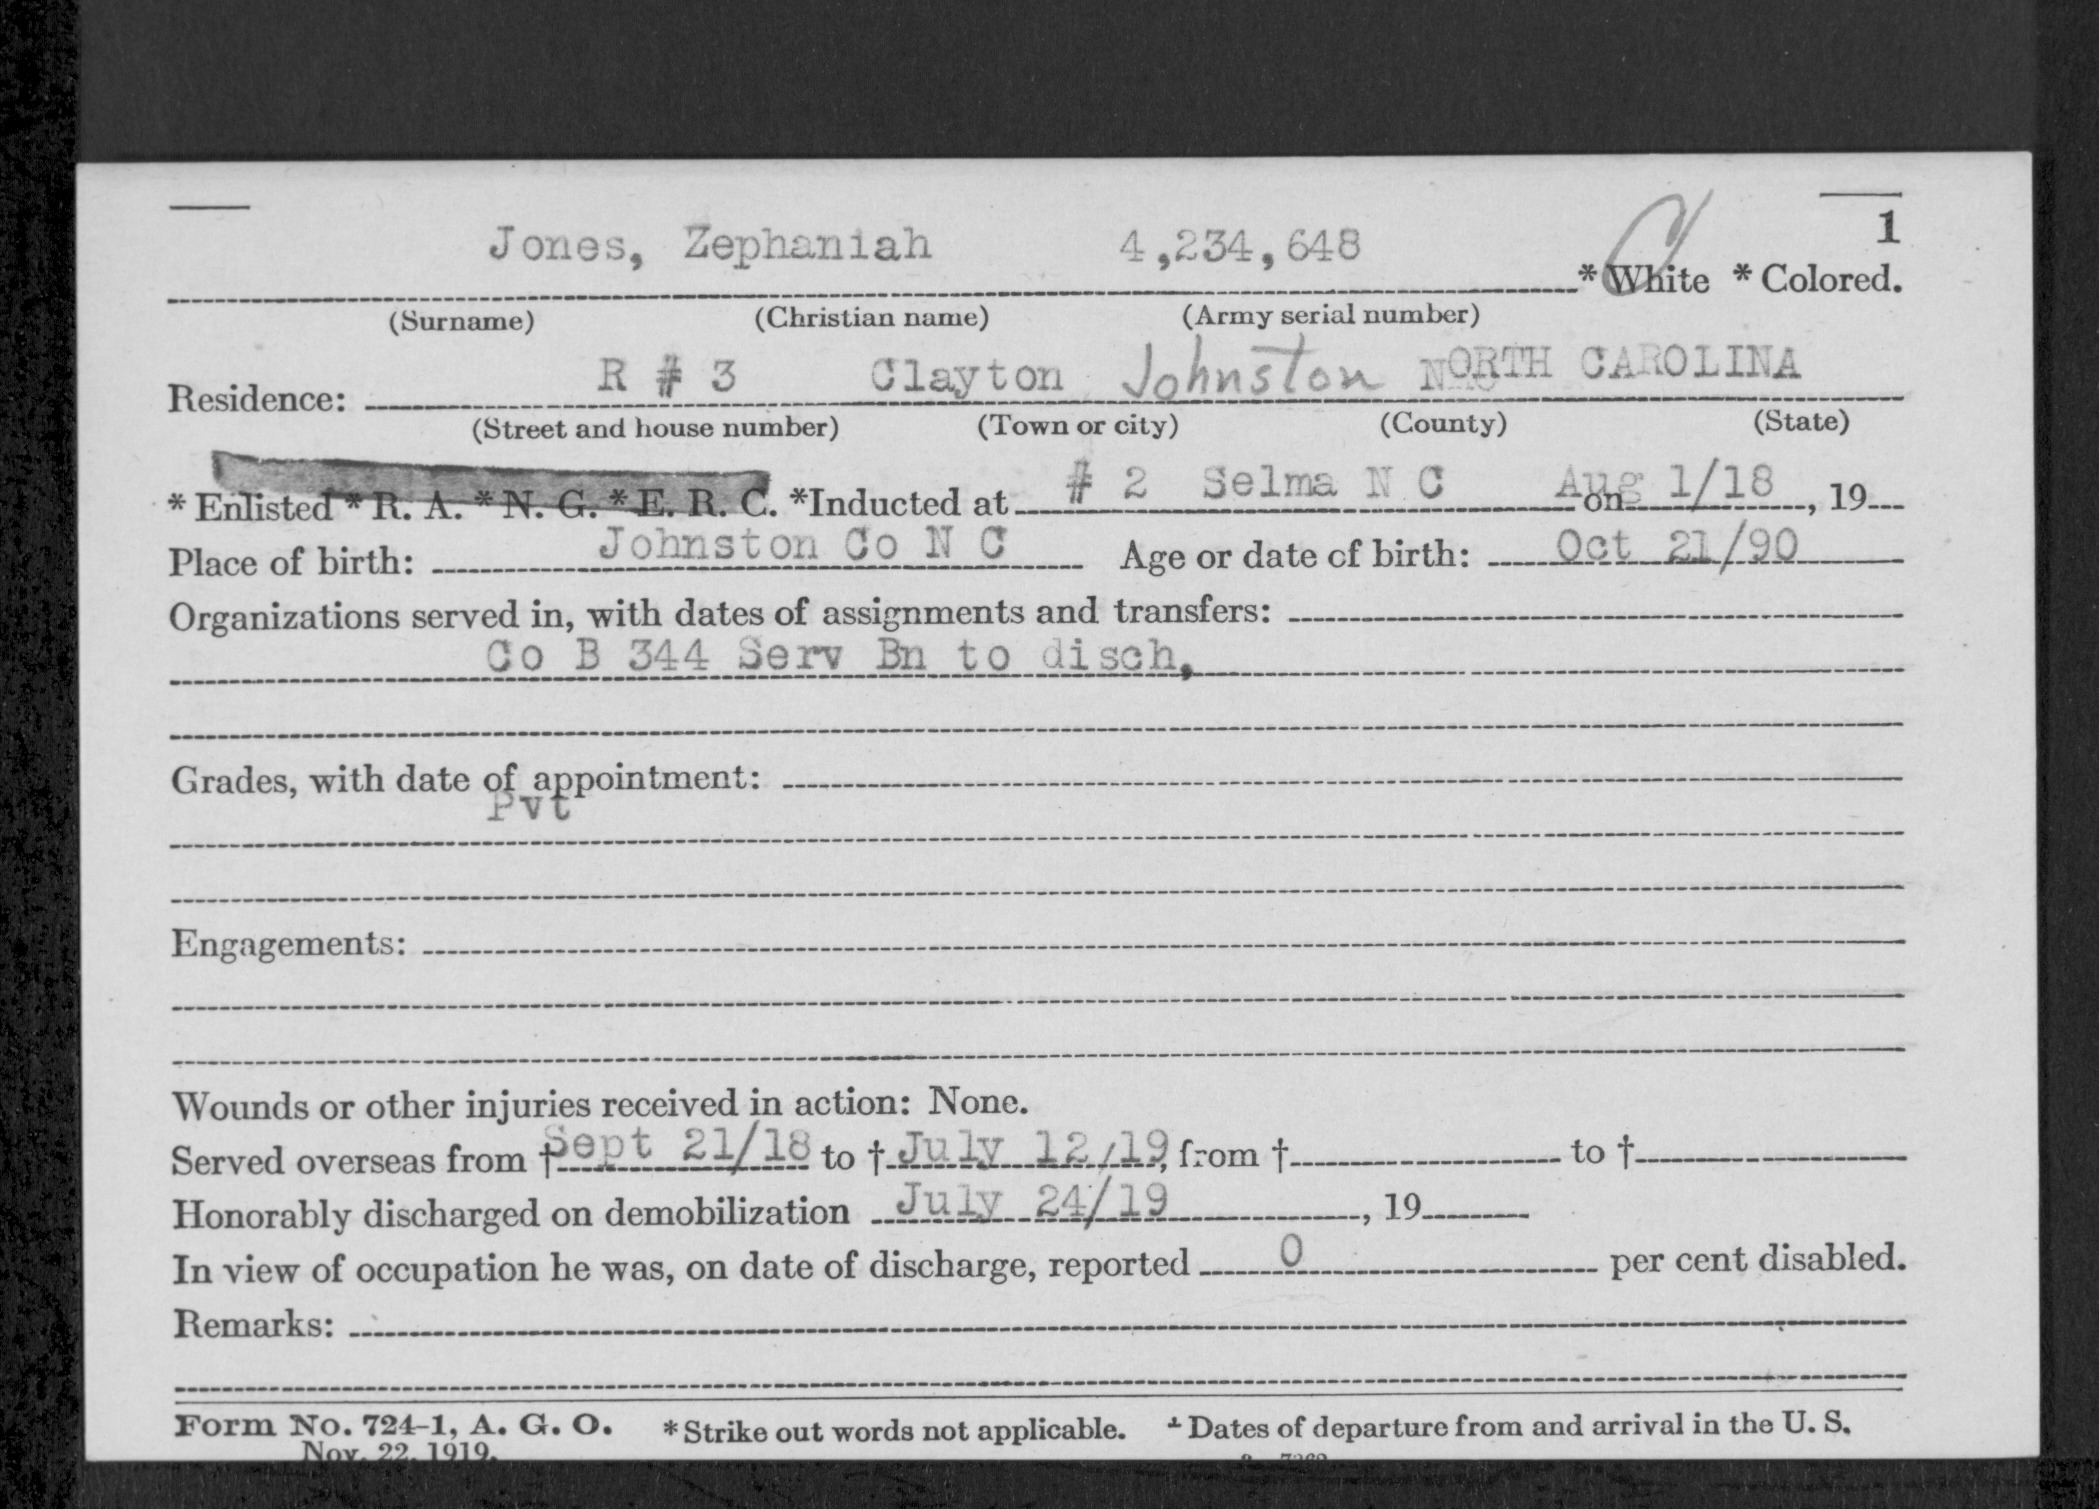 Jones, Zephaniah 4,234,648 C 1
* White * Colored.
(Surname) (Christian name) (Army serial number)
R # 3 Clayton Johnston NORTH CAROLINA
Residence:
(Street and house number) (Town or city) (County) (State)
* Enlisted * R. A. * N. G. * E. R. C. *Inducted at # 2 Selma N C on Aug 1/18, 19
Place of birth: Johnston Co N C Age or date of birth: Oct 21/90
Organizations served in, with dates of assignments and transfers:
Co B 344 Serv Bn to disch,
Grades, with date of appointment:
Pvt
Engagements:
Wounds or other injuries received in action: None.
Served overseas from † Sept 21/18 to † July 12/19, from † to †
Honorably discharged on demobilization July 24/19, 19
In view of occupation he was, on date of discharge, reported 0 per cent disabled.
Remarks:
Form No. 724-1, A. G. O. * Strike out words not applicable. † Dates of departure from and arrival in the U. S.
Nov. 22, 1919.